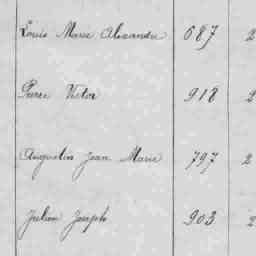 Louis Marie Alexandre 687 2
Pierre Victor 918 2
Augustin Jean Marie 797 2
Julien Joseph 903 2